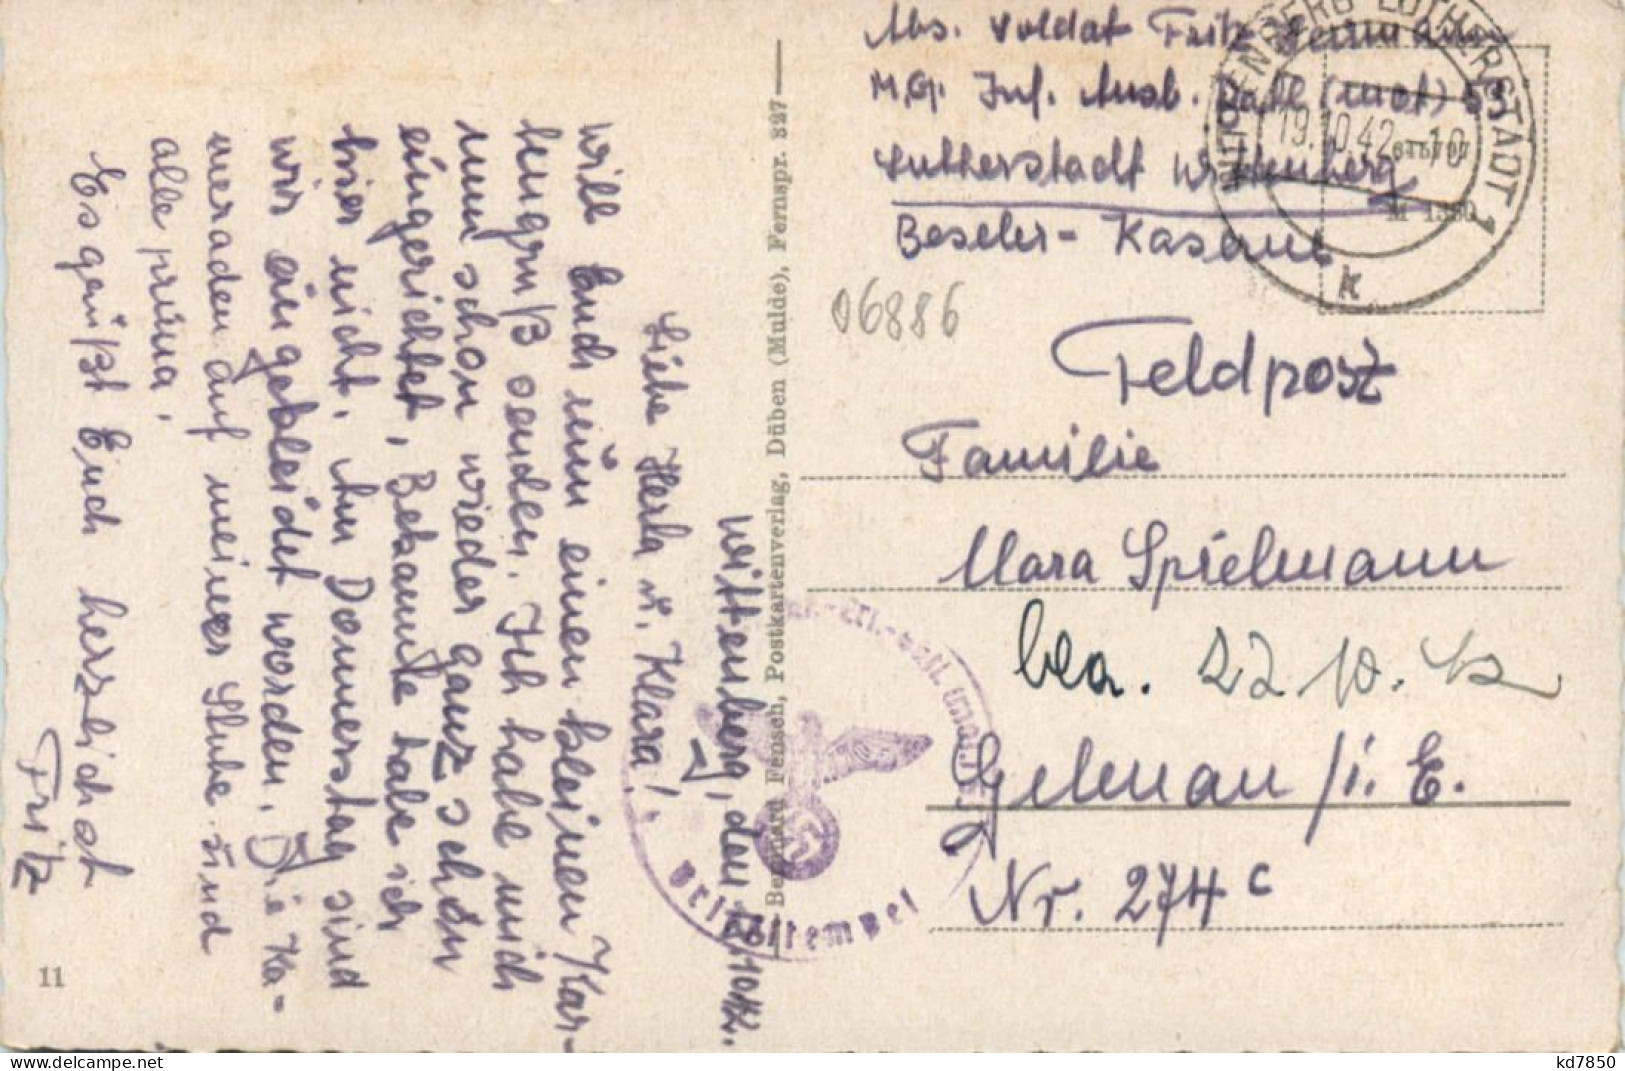 Abs. Soldat Fritz Hermann
M.G. Inf. Ausb. Batl. (mot) 53
Lutherstadt Wittenberg
Beseler-Kaserne
WITTENBERG LUTHERSTADT 1
19.10.42.-10
k
M 1380
06886
Feldpost
Familie
Mara Spielmann
bea. 22 10. 42
Gelenau /i. E.
Nr. 274 c
Bernhard Fensch, Postkartenverlag, Düben (Mulde), Fernspr. 327
Briefstempel
Wittenberg, den 10.42.
Liebe Herla u. Klara!
will Euch nun einen kleinen Kar-
tengruß senden. Ich habe mich
nun schon wieder ganz schön
eingerichtet, Bekannte habe ich
hier nicht. Am Donnerstag sind
wir eingekleidet worden. Die Ka-
meraden auf meiner Stube sind
alle prima.
Es grüßt Euch herzlichst
Fritz
11
kd7850